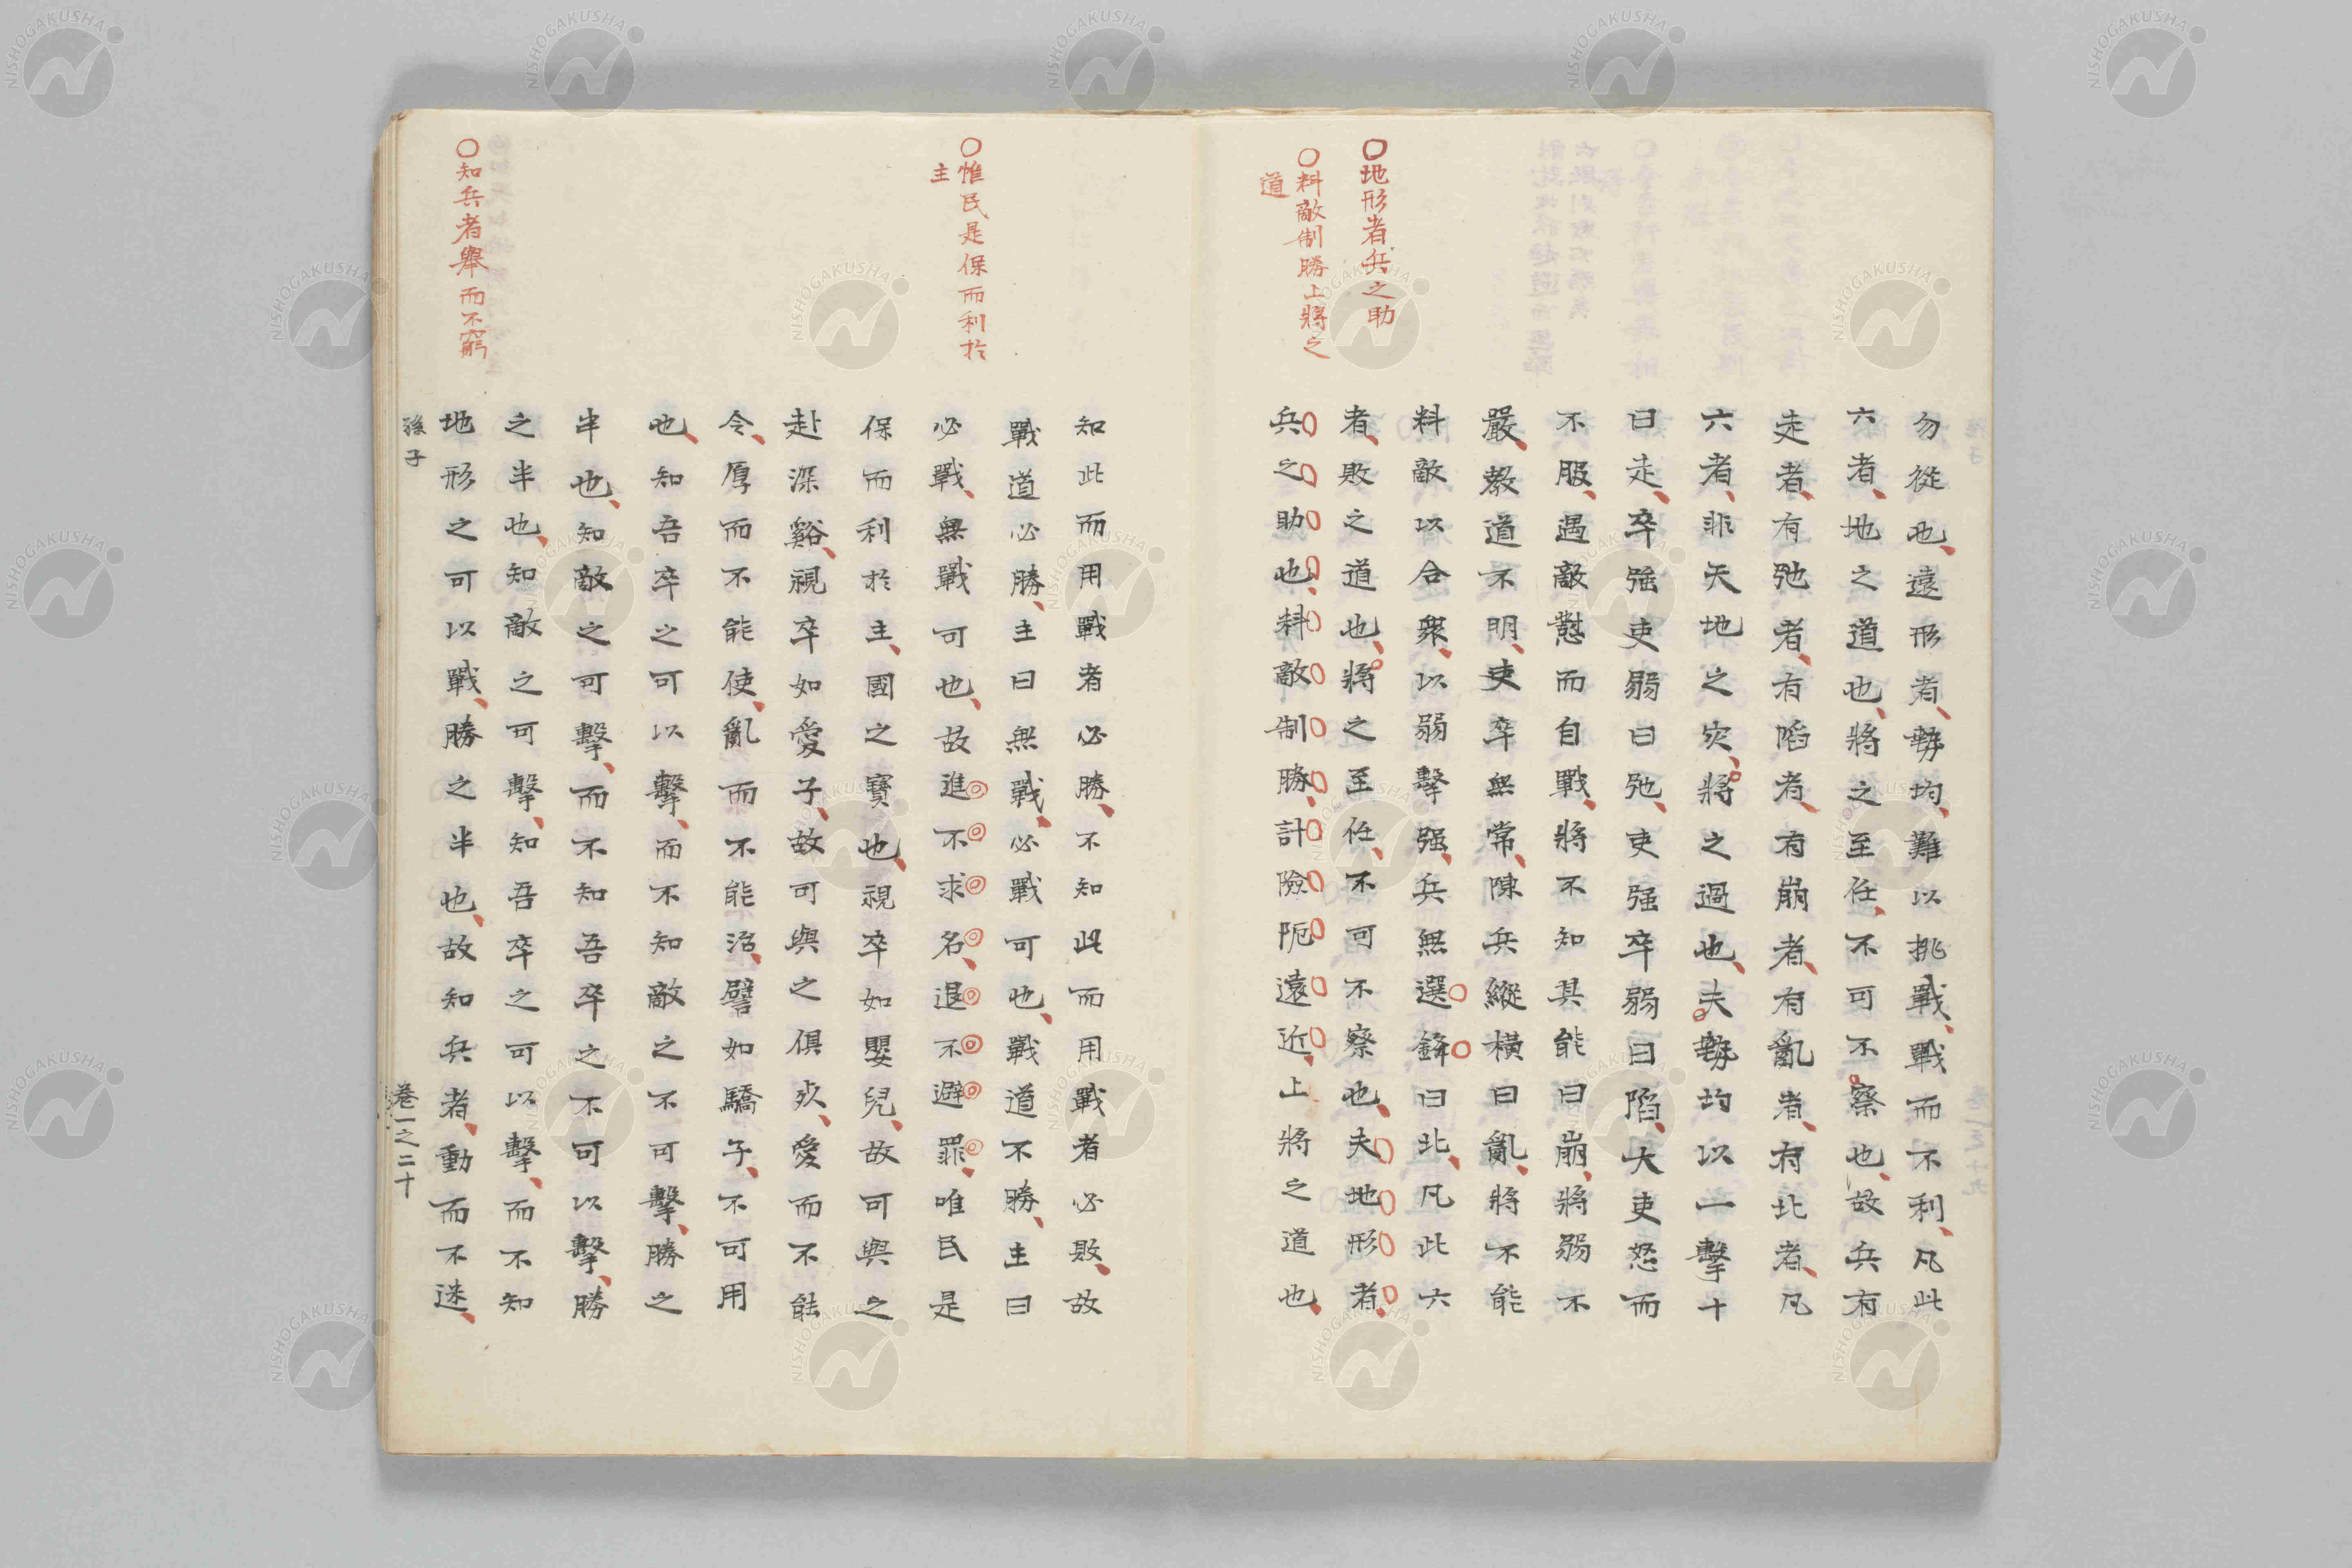 ○地形者兵之助
○料敵制勝上將之
道
勿從也遠形者勢均難以挑戰戰而不利凡此
六者地之道也將之至任不可不察也故兵有
走者有弛者有陷者有崩者有亂者有北者凡
六者非天地之灾將之過也夫勢均以一擊十
曰走卒強吏弱曰弛吏强卒弱曰陷大吏怒而
不服遇敵懟而自戰將不知其能曰崩將弱不
嚴教道不明吏卒無常陳兵縱橫曰亂將不能
料敵以合衆以弱擊强兵無選鋒曰北凡此六
者敗之道也將之至任不可不察也夫地形者
兵之助也料敵制勝計險阨遠近上將之道也
○惟民是保而利於
主
○知兵者舉而不窮
知此而用戰者必勝不知此而用戰者必敗故
戰道必勝主曰無戰必戰可也戰道不勝主曰
必戰無戰可也故進不求名退不避罪唯民是
保而利於主國之寶也視卒如嬰兒故可與之
赴深谿視卒如愛子故可與之俱死愛而不能
令厚而不能使亂而不能治譬如驕子不可用
也知吾卒之可以擊而不知敵之不可擊勝之
半也知敵之可擊而不知吾卒之不可以擊勝
之半也知敵之可擊知吾卒之可以擊而不知
地形之可以戰勝之半也故知兵者動而不迷
孫子
卷一之二十
NISHOGAKUSHA